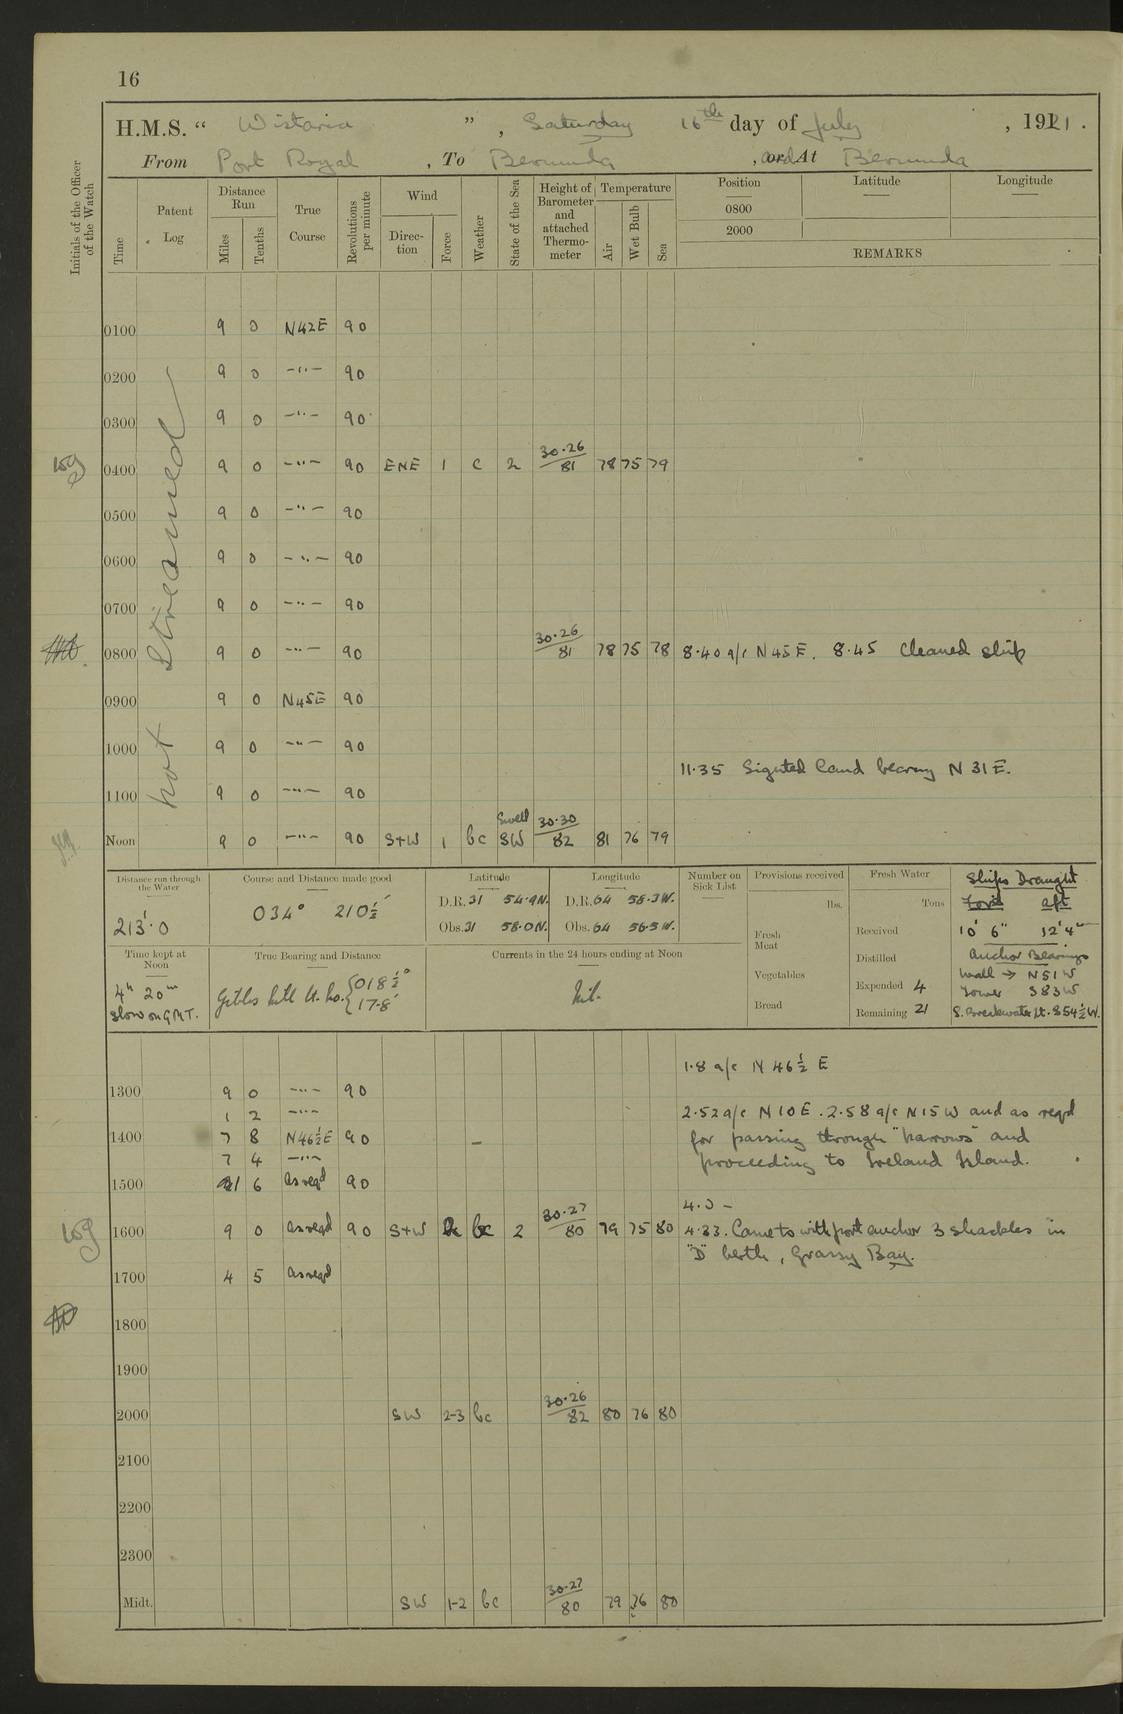 16
H.M.S. “ Wistaria ” , Saturday 16th day of July , 1921 .
From Port Royal , To Bermuda , and At Bermuda
Initials of the Officer of the Watch
Time
Patent Log
Distance Run
Miles
Tenths
True Course
Revolutions per minute
Wind
Direc- tion
Force
Weather
State of the Sea
Height of Barometer and attached Thermo- meter
Temperature
Air
Wet Bulb
Sea
Position Latitude Longitude
0800
2000
REMARKS
not Streamed
0100 9 0 N42E 90
0200 9 0 —"— 90
0300 9 0 —"— 90
0400 9 0 —"— 90 ENE 1 c 2 30.26/81 78 75 79
0500 9 0 —"— 90
0600 9 0 —"— 90
0700 9 0 —"— 90
0800 9 0 —"— 90 30.26/81 78 75 78 8.40 a/c N45E. 8.45 Cleaned ship
0900 9 0 N45E 90
1000 9 0 —"— 90
11.35 Sighted land bearing N 31 E.
1100 9 0 —"— 90
Noon 9 0 —"— 90 S+W 1 bc Swell SW 30.30/82 81 76 79
Distance run through the Water
213'.0
Course and Distance made good
034° 210½'
Latitude
D.R. 31 54.9N.
Obs. 31 58.0N.
Longitude
D.R. 64 58.3W.
Obs. 64 56.5W.
Number on Sick List
Provisions received
lbs.
Fresh Meat
Vegetables
Bread
Fresh Water
Tons
Received
Distilled
Expended 4
Remaining 21
Ships Draught
For'd aft
10' 6" 12' 4"
Anchor Bearings
Wall → N51W
Tower S83W
S. Breakwater Lt. S54½W.
Time kept at Noon
4h 20m
slow on GMT.
True Bearing and Distance
Gibbs hill Lt. Ho. { 018½° 17.8'
Currents in the 24 hours ending at Noon
Nil.
1.8 a/c N 46½ E
1300 9 0 —"— 90
1 2 —"— 2.52 a/c N10E . 2.58 a/c N15W and as reqd
1400 7 8 N46½E 90 – for passing through "Narrows" and
7 4 —"— proceeding to Ireland Island.
1500 1 6 as reqd 90
4.0 –
1600 9 0 as reqd 90 S+W bc 2 30.27/80 79 75 80 4.33. Came to with port anchor 3 shackles in
"D" berth, Grassy Bay.
1700 4 5 as reqd
1800
1900
2000 SW 2-3 bc 30.26/82 80 76 80
2100
2200
2300
Midt. SW 1-2 bc 30.27/80 79 76 80